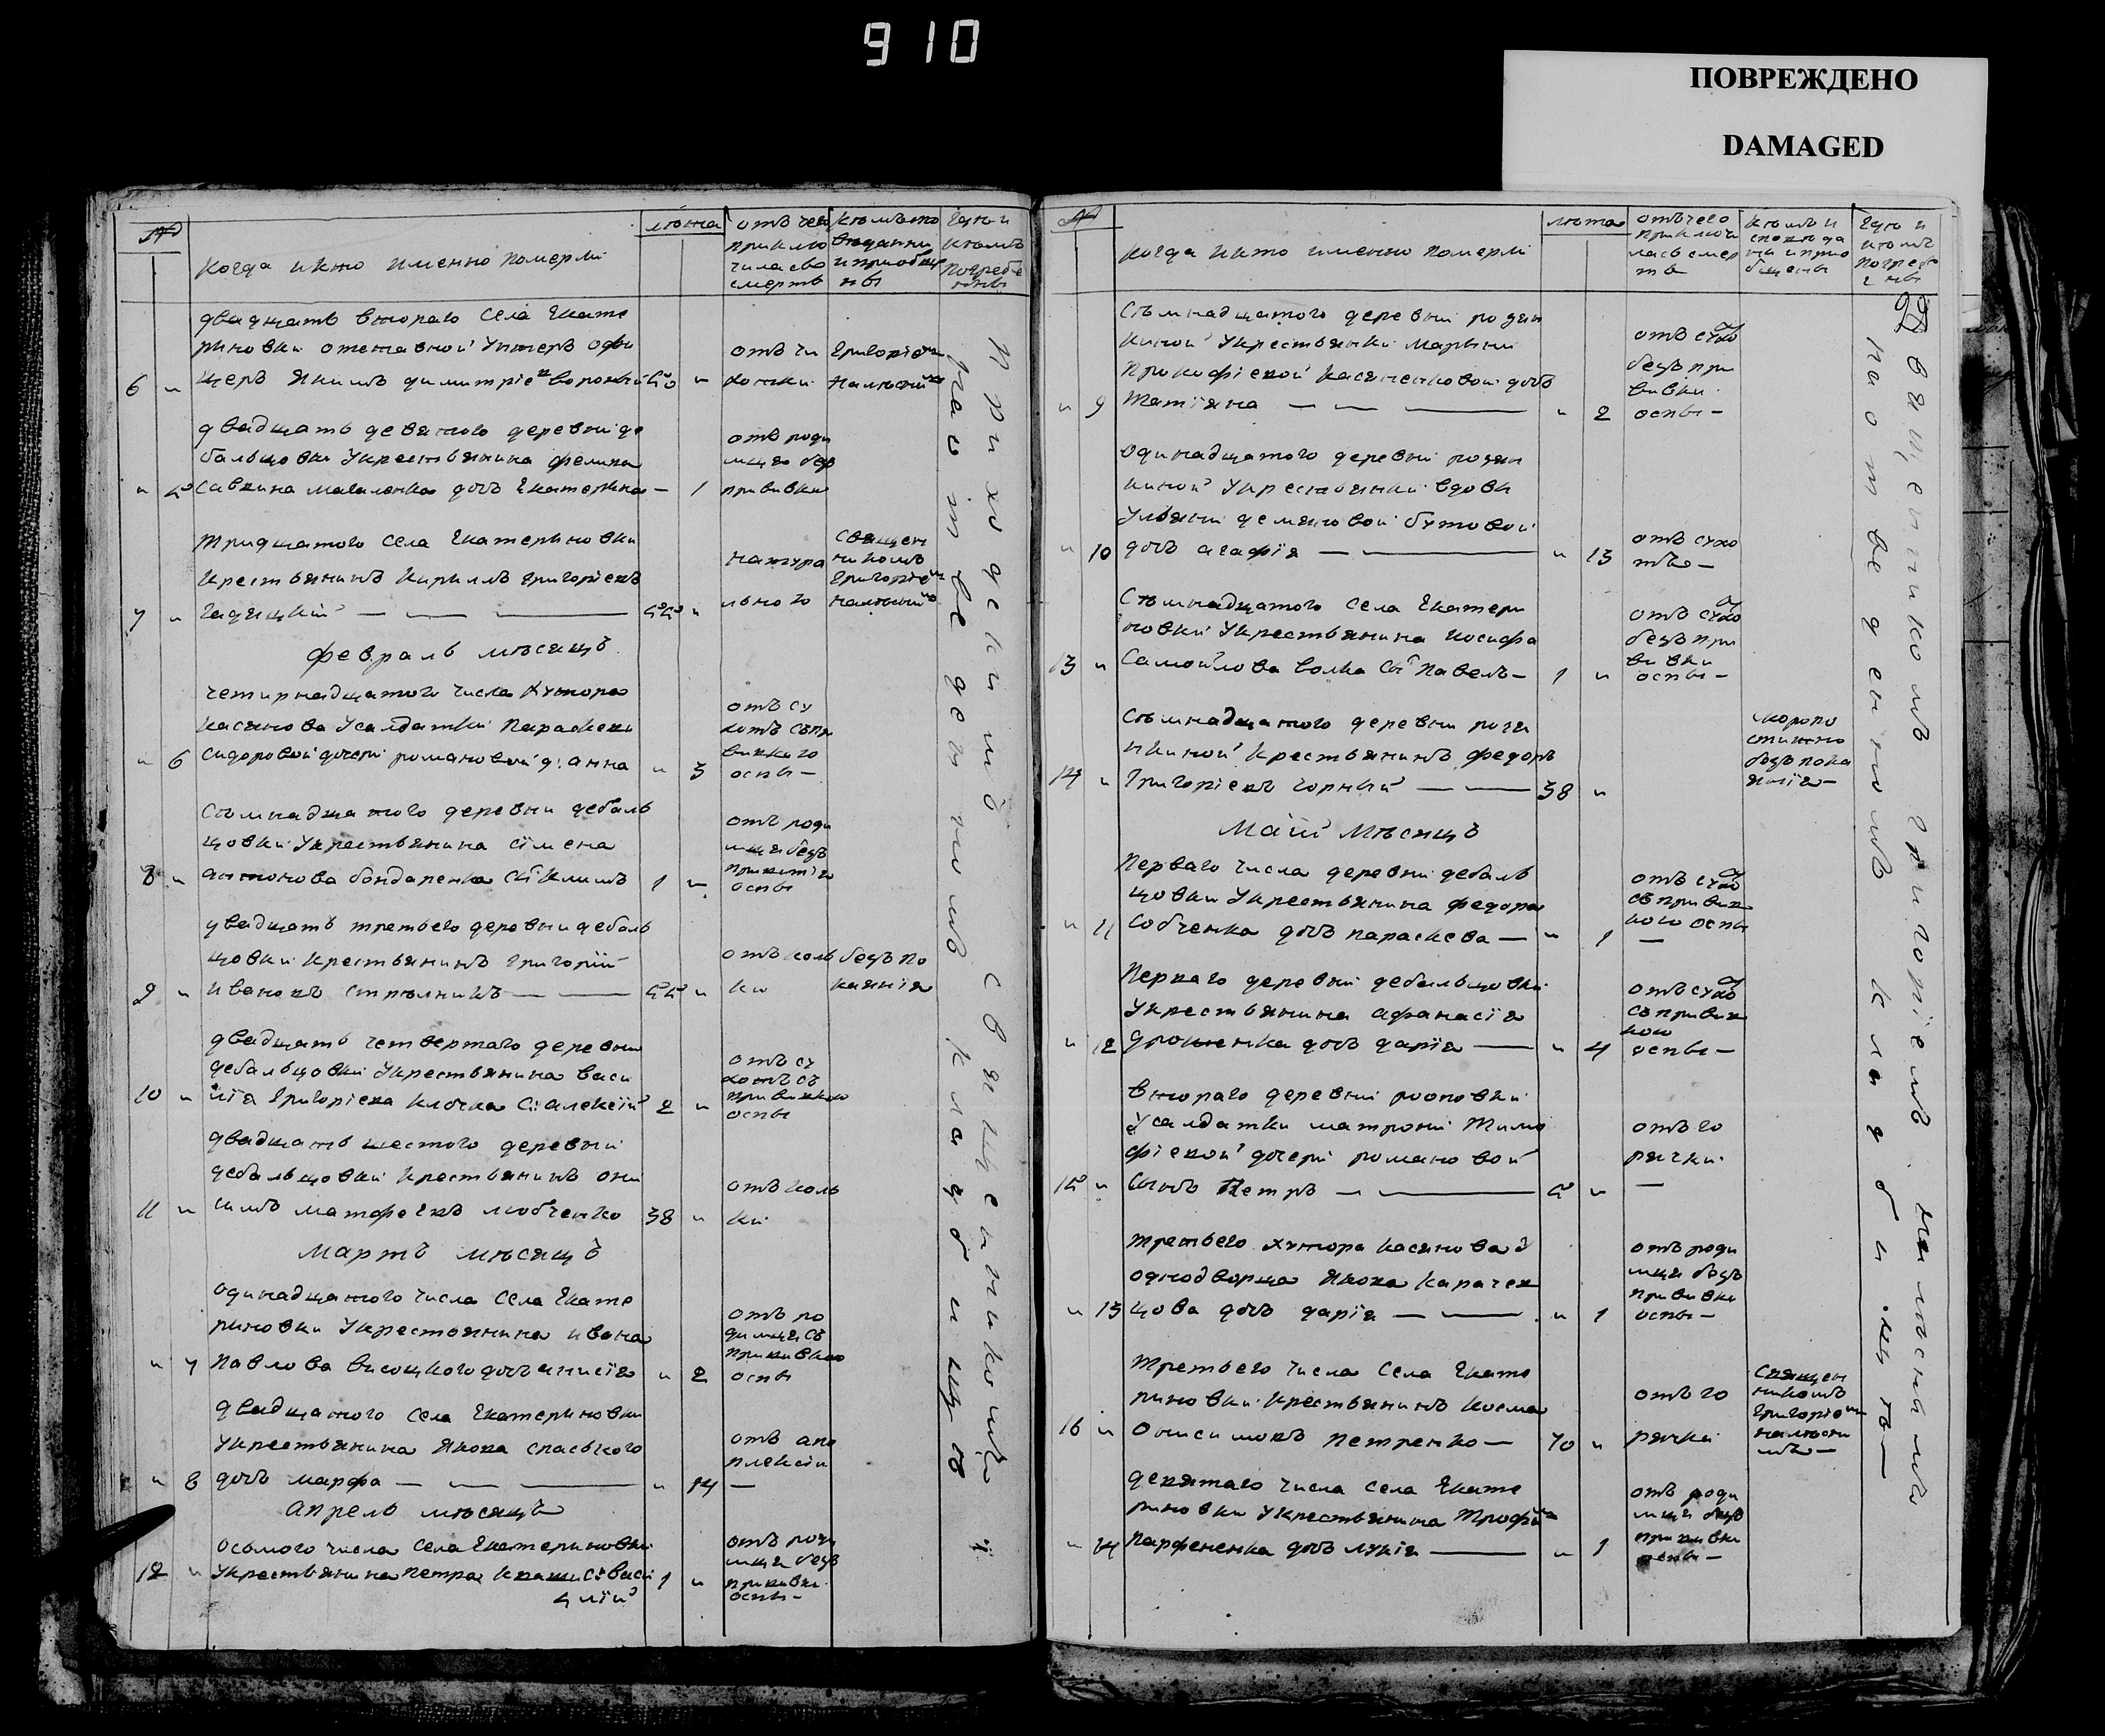 910
ПОВРЕЖДЕНО
DAMAGED
№
когда икто именно померли
лѣта
отъ чего
приклю
чилась
смерть
кѣмъ
и приобще
ны
где и
кѣмъ
погребе
ны
двадцать втораго села Екате
риновки отставной Унтеръ офи
6 " церъ Якимъ димитріевъ "
отъ чи
хотки
Григоріемъ
двадцать девятого деревни де
бальцовки Укрестьянина
" 5 савкина дочь Екатерина — 1
отъ роди
мца безъ
прививки
тридцатого села Екатериновки
крестьянинъ Кирилъ Григоріевъ
7 " Гадяцкій — — — 55 "
натура
льного
Священ
никомъ
Григоріемъ
февраль мѣсяцъ
четирнадцатого числа Хутора
касянова Усалдатки Параскеви
" 6 сидоровой дочери романовой д: анна " 3
отъ су
хотъ съпри
вивкого
оспы —
сѣмнадцатого деревни дебаль
цовки Укрестьянина сімена
8 " антонова бондаренка сы: климъ 1 "
отъ роди
мця безъ
оспы
двадцать третьего деревни дебаль
цовки крестьянинъ Григорій
9 " Ивановъ стрѣлникъ — — 55 "
отъ коль
ки
безъ по
каянія
двадцать четвертаго деревни
дебальцовки Укрестьянина Васи
10 " лія Григоріева клочка сы: алексій 2 "
отъ су
хотъ съ
прививкою
оспы
двадцать шестого деревни
дебальцовки крестьянинъ они
11 " симъ матфеевъ любченко 38 "
отъ коль
ки
мартъ мѣсяцъ
одинадцатого числа села Екате
риновки Укрестьянина ивана
" 7 Павлова висоцкого дочь анисія " 2
отъ ро
димця съ
прививкою
оспы
двадцатого села Екатериновки
Укрестьянина Якова спаского
" 8 дочь марфа — — — " 14
отъ апо
плексіи
—
апрель мѣсяцъ
осьмого числа села Екатериновки
12 " Укрестьянина Петра сы: Васи
лій 1 "
отъ роди
мця безъ
прививки
оспы —
приходскимъ священникомъ
на отведенномъ кладбищѣ
№
когда икто именно померли
лѣта
отъ чего
приключи
лась смер
ть
кѣмъ и
где и
кѣмъ
погреб
ены
сѣмнадцатого деревни розин
киной Укрестьянки Марѣни
Прокофіевой касяненковой дочь
" 9 Татіяна — — — " 2
отъ сухо
безъ при
вивки
оспы —
одинадцатого деревни розин
киной Укрестьянки вдови
Ульяни демяновой бутовой
" 10 дочь агафія — — " 13
отъ сухо
тъ —
сѣмнадцатого села Екатери
новки Укрестьянина иосифа
13 " самойлова волка сы: Павелъ — 1 "
отъ сухо
безъ при
вивки
оспы —
сѣмнадцатого деревни рози
нкиной крестьянинъ федоръ
14 " Григоріевъ чорный — — 38 "
скоропо
стижно
безъ пока
янія —
Май мѣсяцъ
Перваго числа деревни дебаль
цовки Укрестьянина федора
" 11 собченка дочь параскева — " 1
отъ сухо
съ привив
кого оспы
—
Перваго деревни дебальцовки
Укрестьянина афанасія
" 12 дочь дарія — " 4
отъ сухо
съ привив
кою
оспы —
втораго деревни
Усалдатки матрони Тимо
фіевой дочери романовой
15 " сынъ Петръ — — 5 "
отъ го
рячки
—
третьего хутора касянова
однодворца Якова
" 13 дочь дарія — — " 1
отъ роди
мця безъ
прививки
оспы —
Третьего числа села Екате
риновки крестьянинъ косма
16 " Онисимовъ Петренко — 70 "
отъ го
рячки
Священ
никомъ
Григоріемъ
девятаго числа села Екате
риновки Укрестьянина Трофима
" 14 Парфененка дочь лукія — " 1
отъ роди
мця безъ
прививки
оспы —
священникомъ григоріемъ
на отведенномъ кладбищѣ —